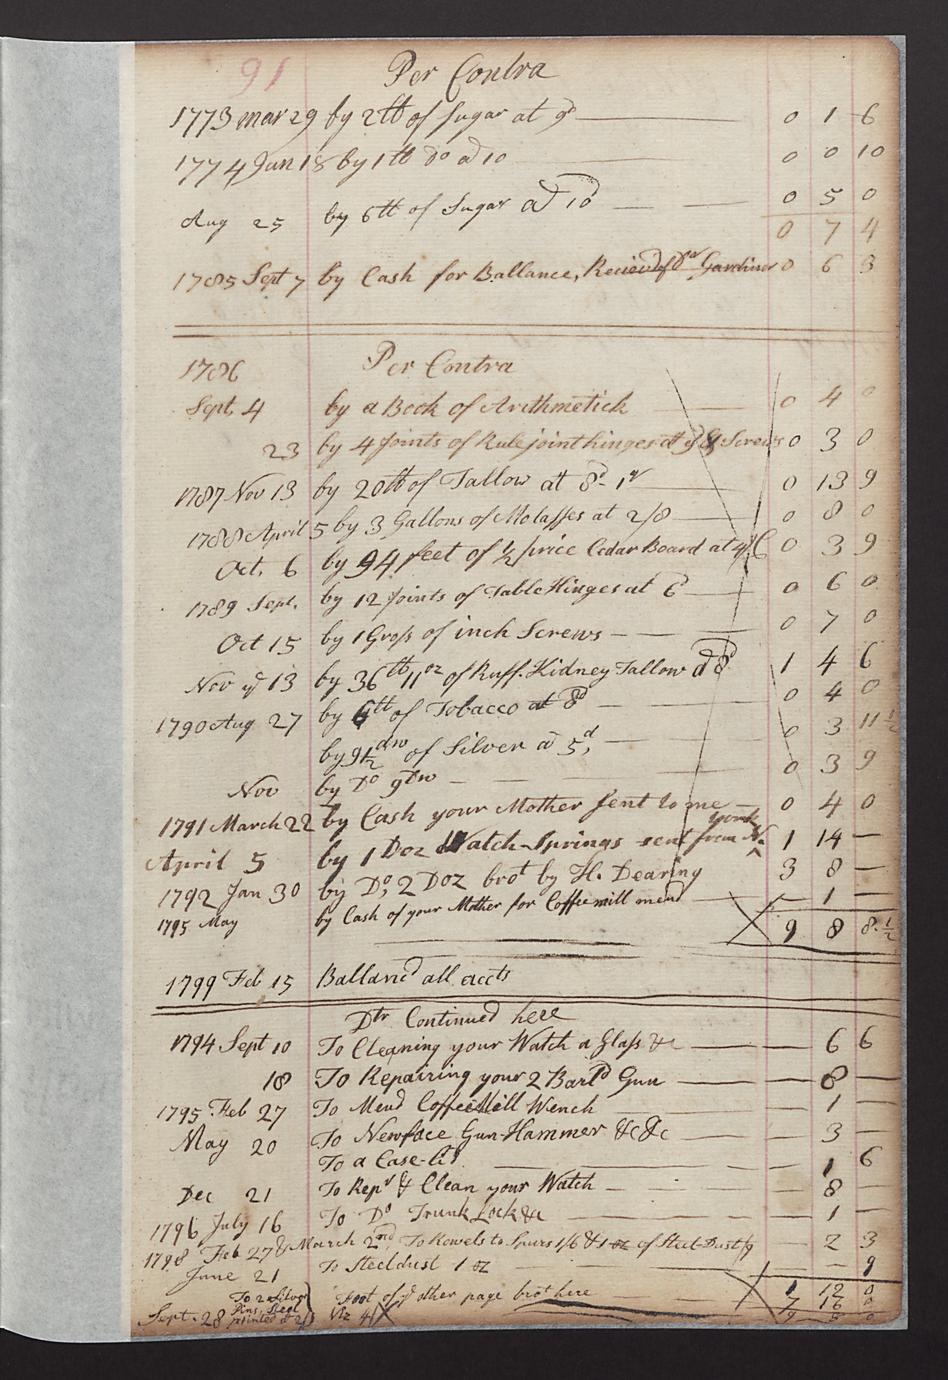 91 Per Contra
1773 mar 29 by 2lb of Sugar at 9d 0 1 6
1774 Jun 18 by 1lb do at 10 0 0 10
Aug 25 by 6lb of Sugar at 10d 0 5 0
0 7 4
1785 Sept 7 by Cash for Ballance, Recievd of Dr Gardiner 0 6 3
1786 Per Contra
Sept. 4 by a Book of Arithmetick 0 4 0
23 by 4 Joints of Rule joint hinges at 9d & Screws 0 3 0
1787 Nov 13 by 20lb of Tallow at 8d 1qr 0 13 9
1788 April 5 by 3 Gallons of Molasses at 2/8 0 8 0
Oct. 6 by 94 feet of ½ price Cedar Board at 4/ C 0 3 9
1789 Sept. by 12 Joints of Table Hinges at 6d 0 6 0
Oct 15 by 1 Gross of inch Screws 0 7 0
Nov ye 13 by 36lb 11oz of Ruff. Kidney Tallow at 8d 1 4 6
1790 Aug 27 by 6lb of Tobacco at 8d 0 4 0
by 9½ dw of Silver at 5d, 0 3 11½
Nov by Do 9dw 0 3 9
1791 March 22 by Cash your Mother sent to me 0 4 0
York
April 5 by 1 Doz Watch-Springs sent from N. 1 14 —
1792 Jan 30 by Do, 2 Doz brot by H. Dearing 3 8 —
1795 May by Cash of your Mother for Coffeemill mend — 1 —
9 8 8.½
1799 Feb 15 Ballancd all accts
Dtr Continued here
1794 Sept 10 To Cleaning your Watch a Glass &c — 6 6
18 To Repairing your 2 Barld Gun — 8 —
1795 Feb 27 To Mend Coffee Mill Wench — 1 —
May 20 To Newface Gun-Hammer &c &c — 3 —
To a Case — 1 6
Dec 21 To Repr & Clean your Watch — 8 —
1796 July 16 To Do Trunk Lock &c — 1 —
1798 Feb 27 & March 2nd, To Rowels to Spurs 1/6 & 1 oz of Steel-Dust /9 — 2 3
June 21 To Steeldust 1 oz — — 9
To 2 Silver Foot of ye other page brot here 1 12 0
Sept. 28 Viz 7 16 8
9 8